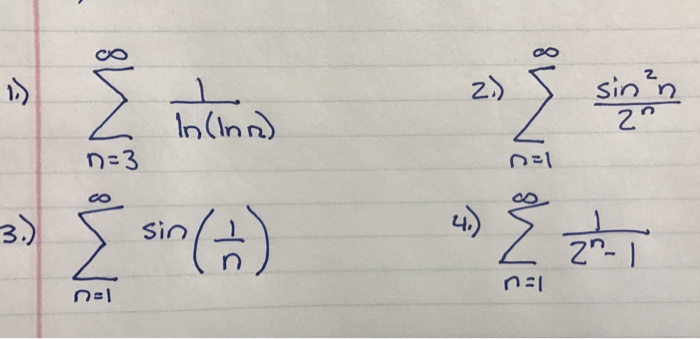 1.) \sum_{n=3}^{\infty} \frac{1}{\ln(\ln n)}
2.) \sum_{n=1}^{\infty} \frac{\sin^2 n}{2^n}
3.) \sum_{n=1}^{\infty} \sin\left(\frac{1}{n}\right)
4.) \sum_{n=1}^{\infty} \frac{1}{2^n - 1}